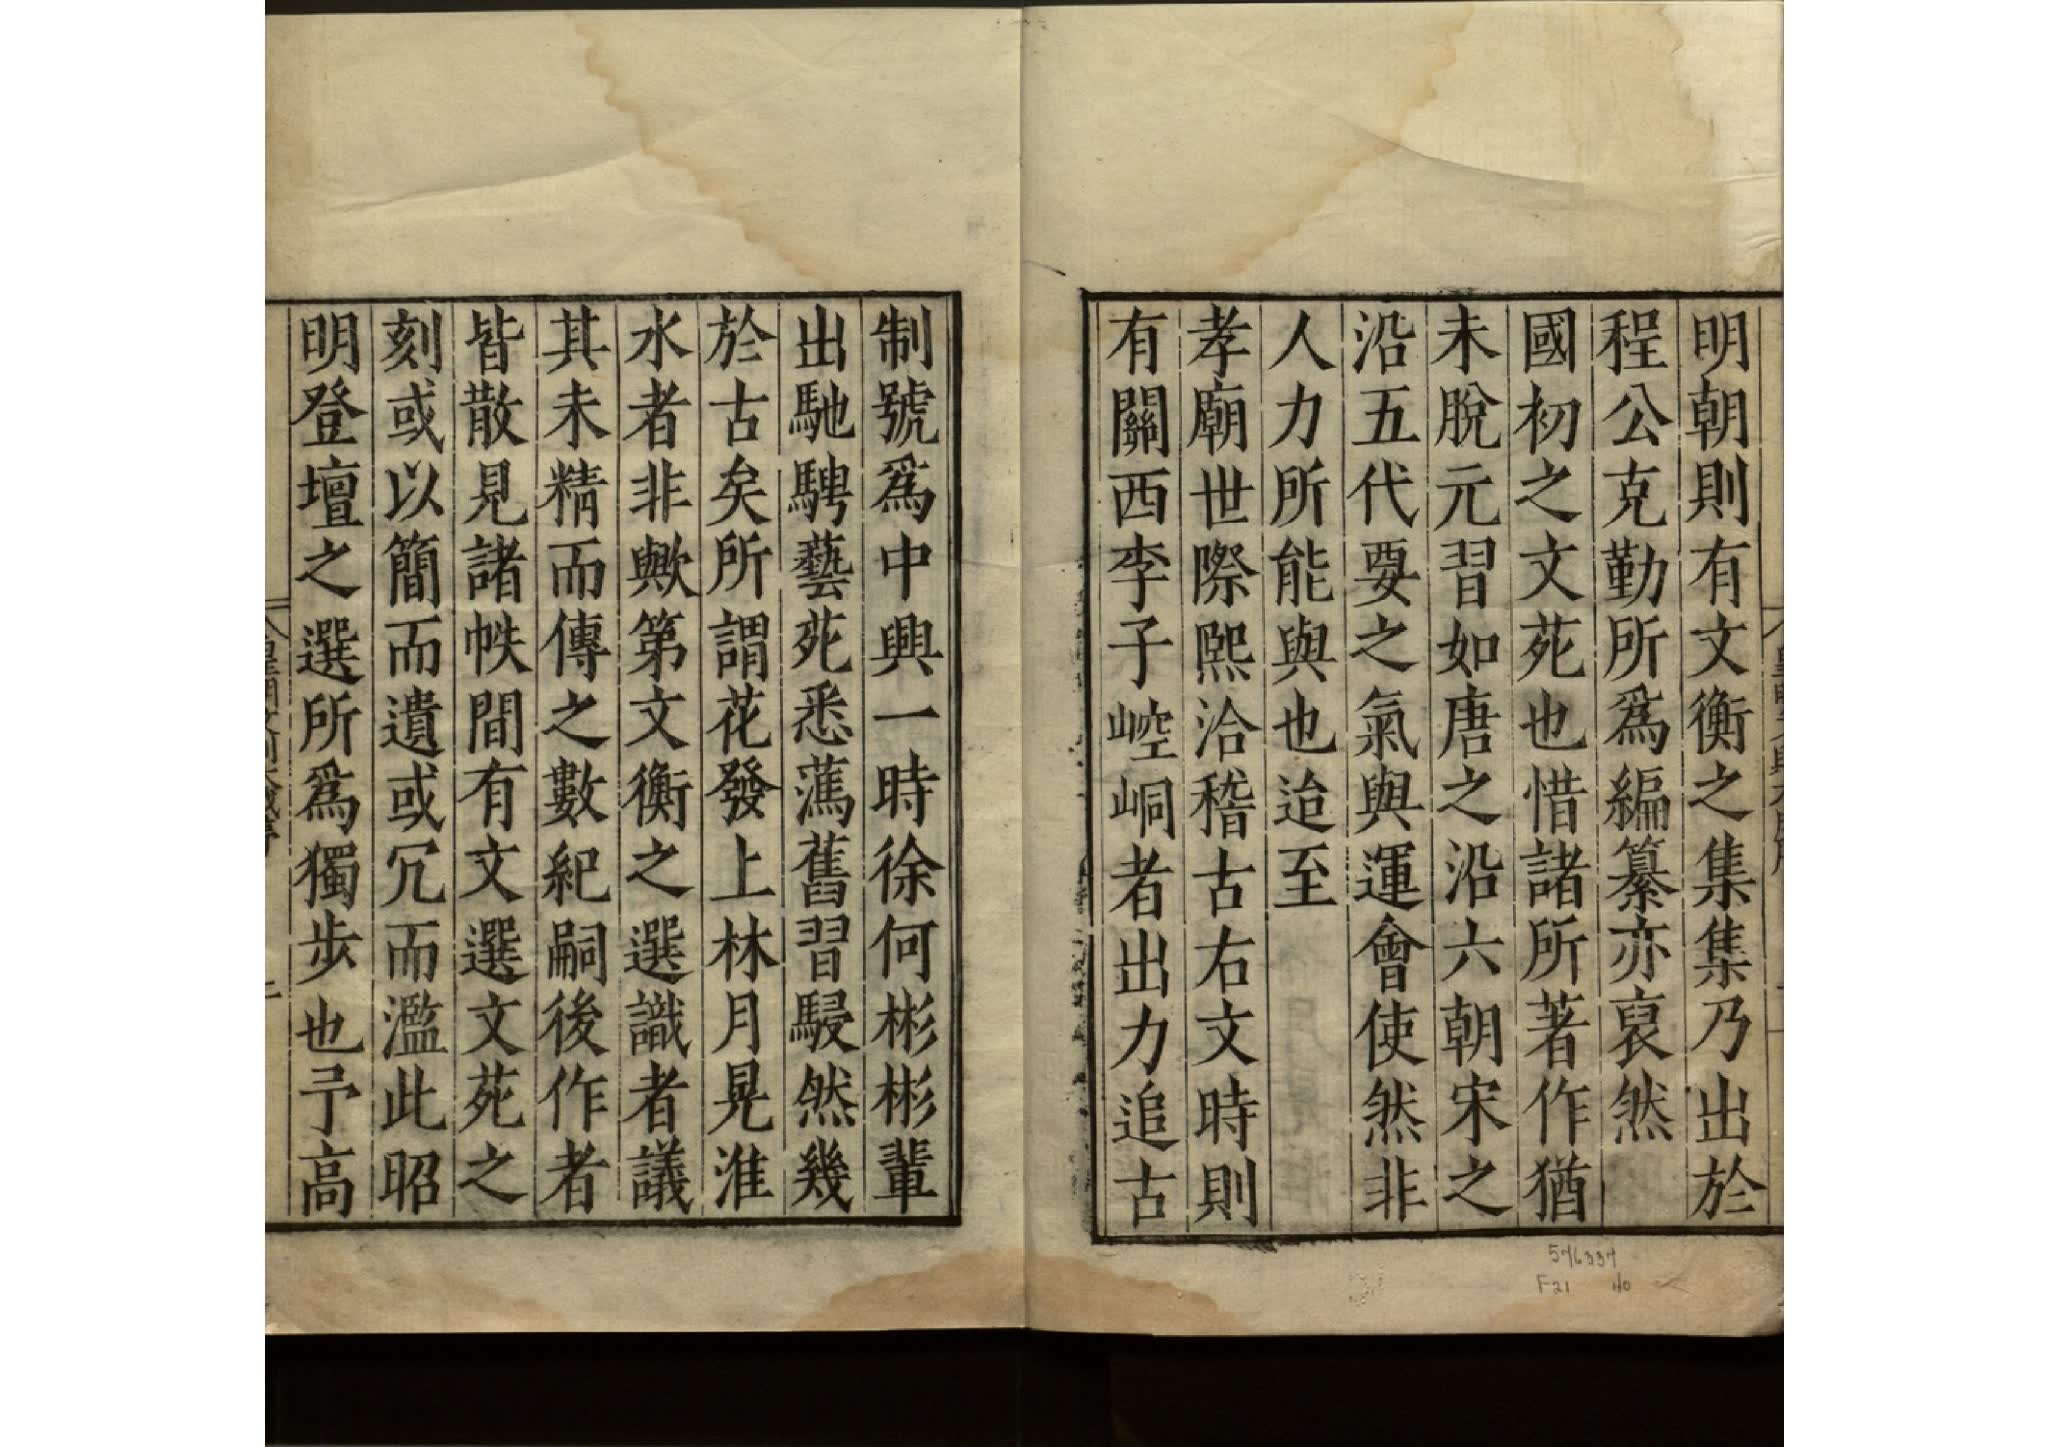 明朝則有文衡之集集乃出於
程公克勤所爲編纂亦裒然
國初之文苑也惜諸所著作猶
未脫元習如唐之沿六朝宋之
沿五代要之氣與運會使然非
人力所能與也迨至
孝廟世際熙洽稽古右文時則
有關西李子崆峒者出力追古
制號爲中興一時徐何彬彬輩
出馳騁藝苑悉蕩舊習駸然幾
於古矣所謂花發上林月晃淮
水者非歟第文衡之選識者議
其未精而傳之數紀嗣後作者
皆散見諸帙間有文選文苑之
刻或以簡而遺或冗而濫此昭
明登壇之選所爲獨步也予高
576337
F21